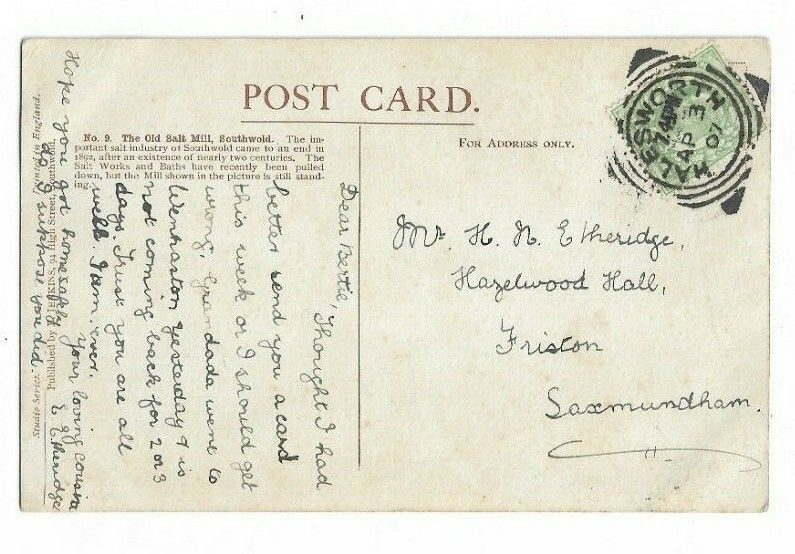 POST CARD.
No. 9. The Old Salt Mill, Southwold. The im-
portant salt industry of Southwold came to an end in
1892, after an existence of nearly two centuries. The
Salt Works and Baths have recently been pulled
down, but the Mill shown in the picture is still stand-
ing.
FOR ADDRESS ONLY.
HALESWORTH
7.45PM
AP 3
07
Mr. H. N. Etheridge,
Hazelwood Hall,
Friston
Saxmundham.
Dear Bertie, Thought I had
better send you a card
this week or I should get
wrong. Grandada went to
Wenhaston yesterday & is
not coming back for 2 or 3
days. Trust you are all
well. I am, ever,
Your loving cousin
E. Etheridge
Hope you got home safely
as I suppose you did.
Studio Series.
Published by
KINS, 94 High Street, Southwold.
Printed in England.